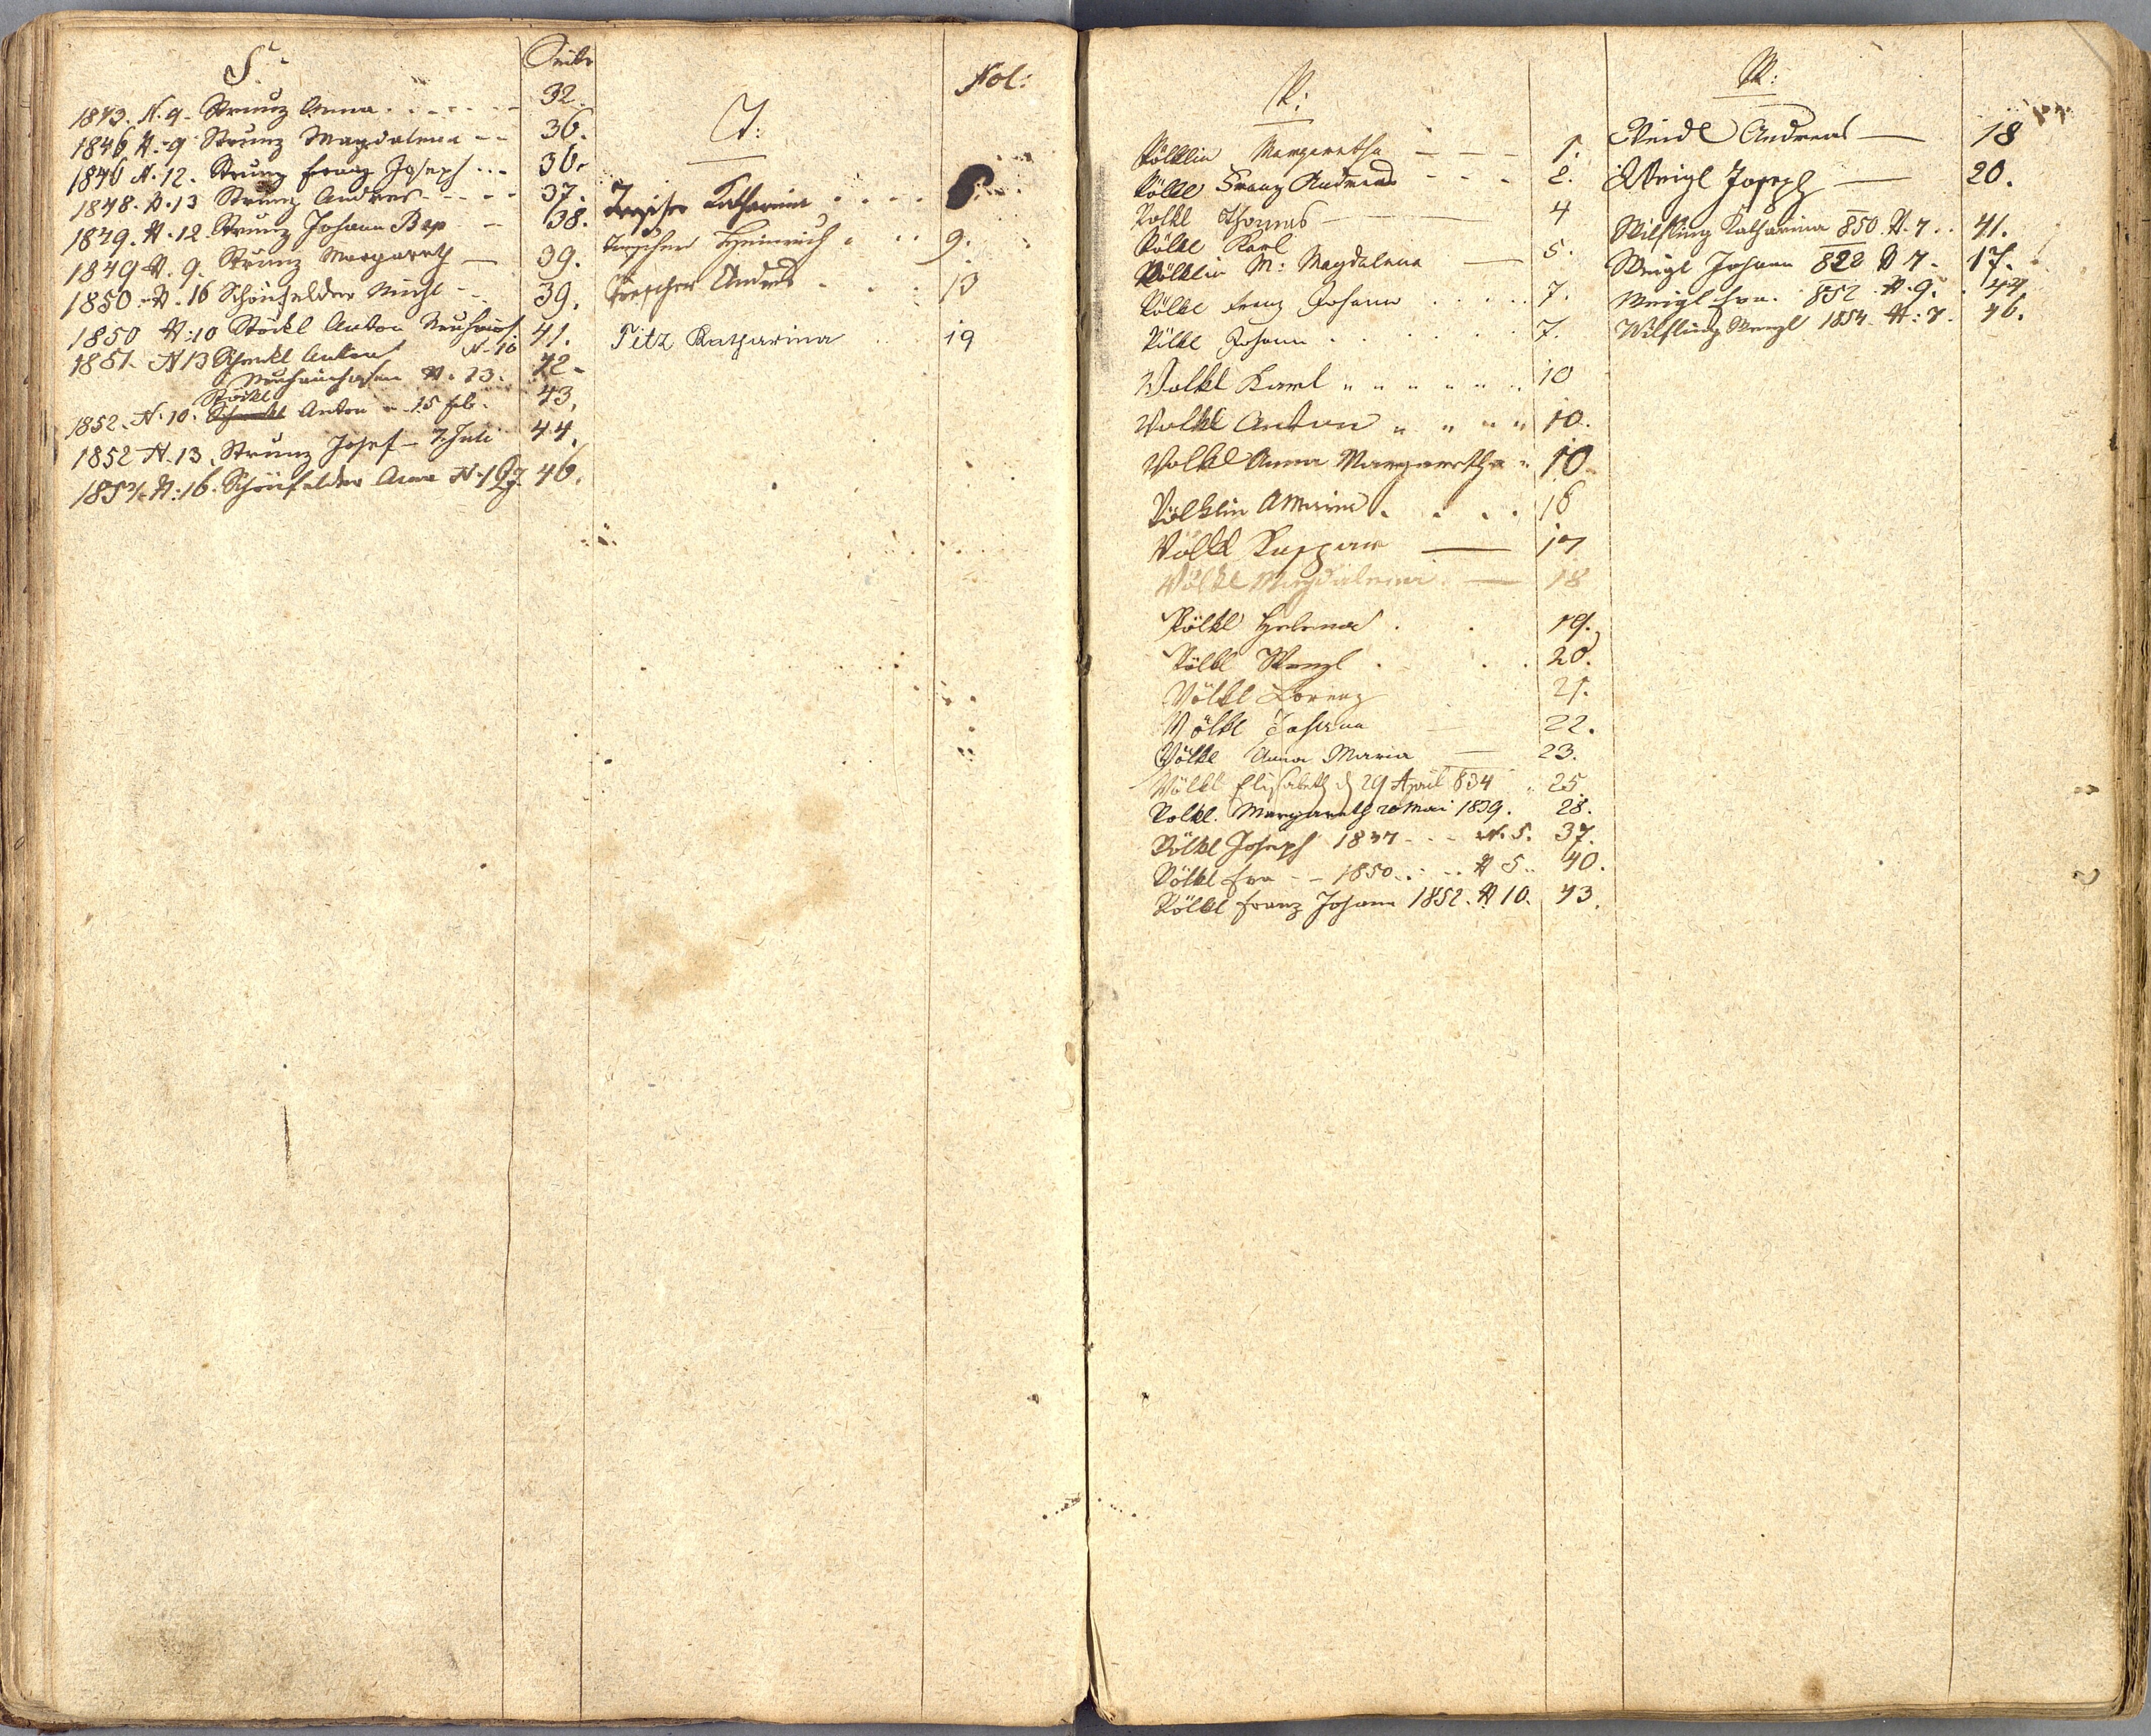 S. Seite
1843. N. 9. Strunz Anna 32.
1846 N. 9 Strunz Magdalena 36.
1846 N. 12. Strunz Franz Joseph 36.
1848. N. 13 Strunz Andreas 37.
1849. N. 12. Strunz Johann Bap 38.
1849 N. 9. Strunz Margareth 39.
1850. N. 16 Schönfelder Michl 39.
1850 N: 10 Stöckl Anton 41.
N. 10
1851. N 13 Anton 42.
N. 13.
Stöckl
1852. N. 10. Anton 15 Feb. 43.
1852 N. 13. Strunz Josef 7. Juli 44.
N: 16. Schönfelder Anna 46.
T: Fol:
Katharina
Heinrich 9.
Andreas 13
Titz Katharina 19
V:
Völklin Margaretha 1.
Völkl Franz Andreas 2.
Volkl Thomas 4
Völkl Karl 5.
Völklin M: Magdalena
Völkl Franz Johann 7.
Völkl Johann 7.
Volkl Karl 10
Volkl Anton 10.
Volkl Anna Margaretha 10.
Völklin 16
Völkl Kaspar 17
Völkl Magdalena 18
Völkl Helena 19.
Völkl Wenzl 20.
Völkl Lorenz 21.
Völkl Johann 22.
Völkl Anna Maria 23.
Völkl Elisabeth d 29 April 834 25
Volkl. Margareth 20 Mai 1839. 28.
Völkl Joseph 1847 N. 5. 37.
Völkl Eva 1850 N 5. 40.
Völkl Franz Johann 1852. N 10. 43.
W:
Weidl Andreas 18
Weigl Joseph 20.
Wilfling Katharina 850 N. 7 41.
Weigl Johann 828 N 7 17.
Weigl Eva. 852 N. 9.
Wilfling Wenzl 1854 N: 7. 46.